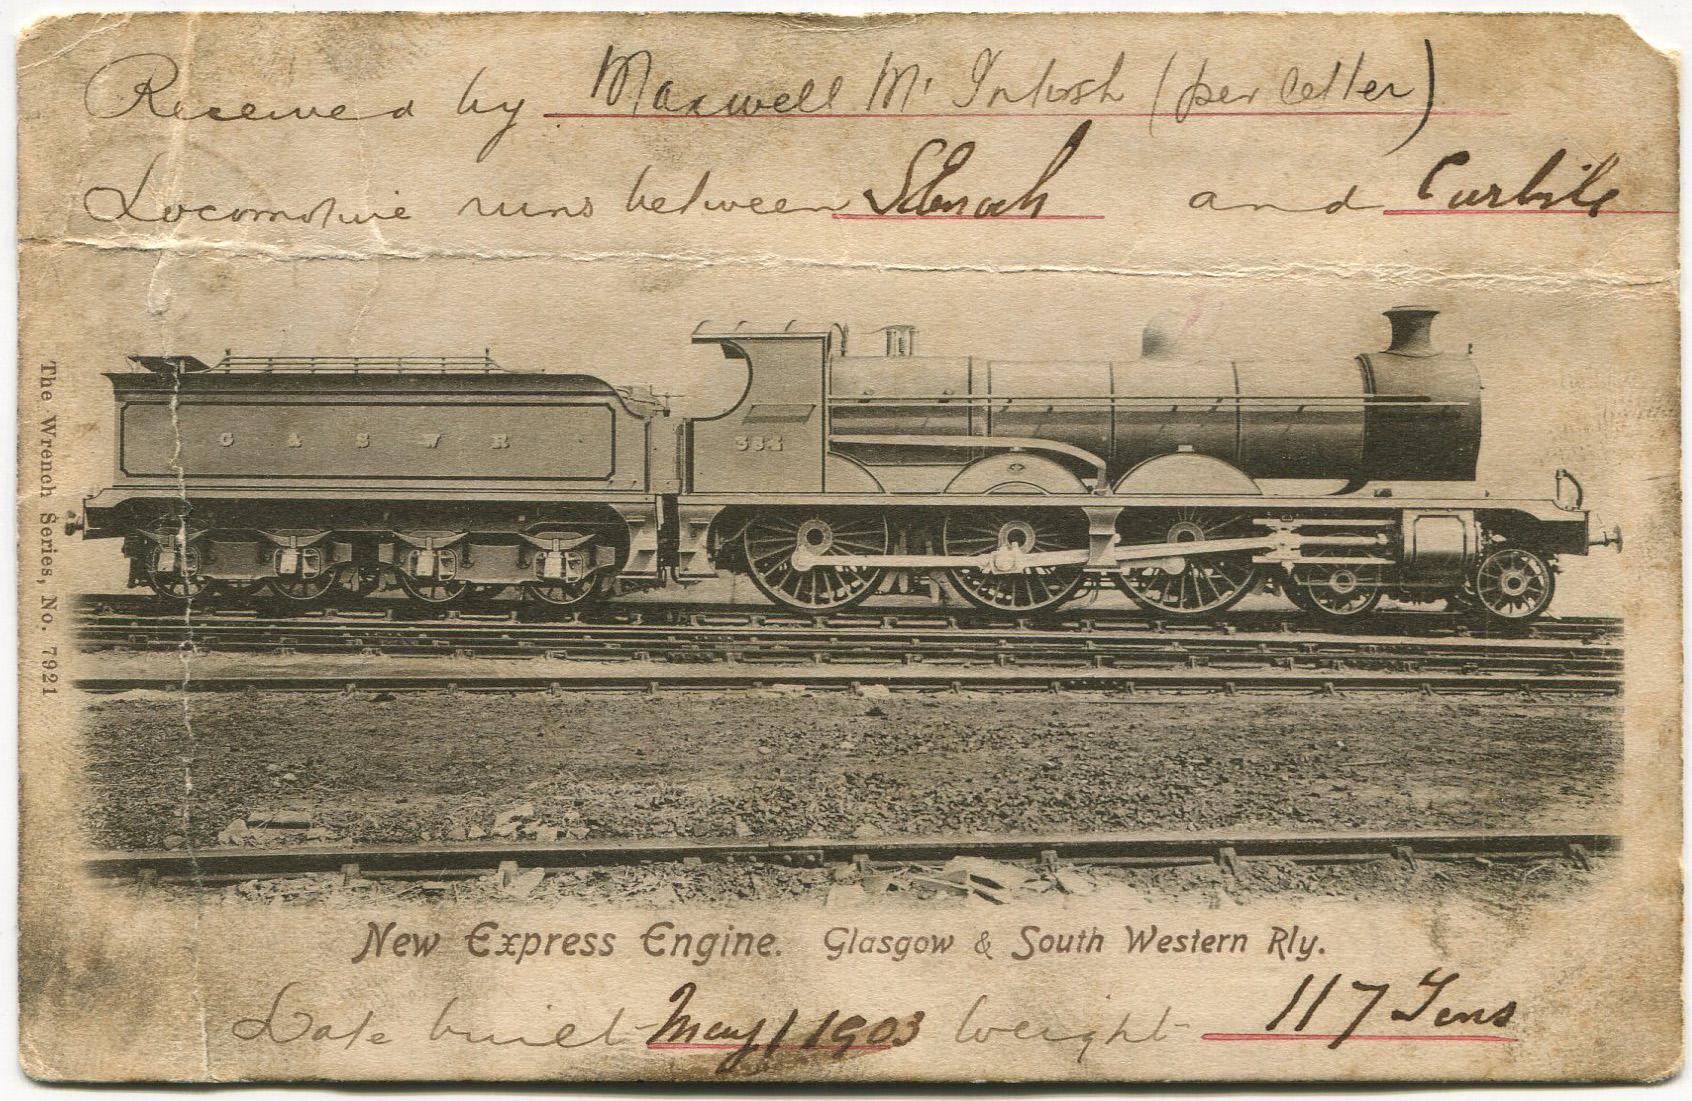 Received by Maxwell Mc Intosh (per letter)
Locomotive runs between and
G & S W R
The Wrench Series, No. 7921
New Express Engine. Glasgow & South Western Rly.
Date built May 1903 weight 117 Tons